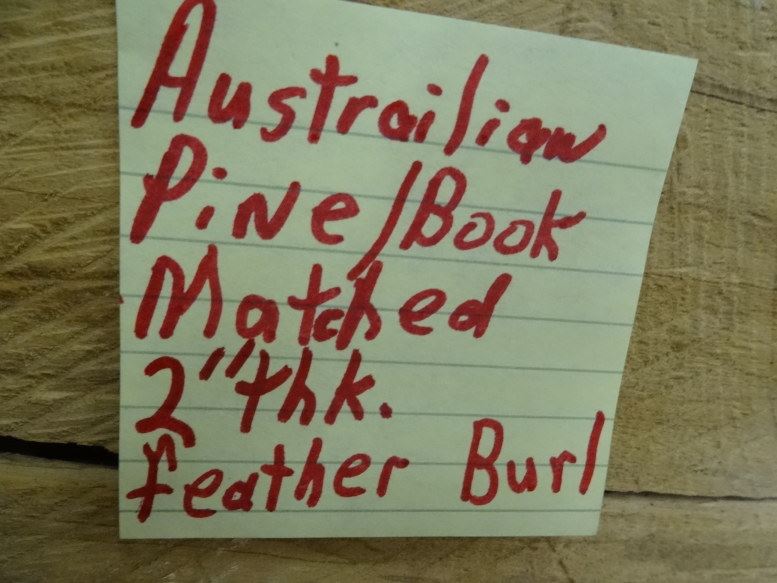 Austrailian
Pine/Book
Matched
2" thk.
feather Burl